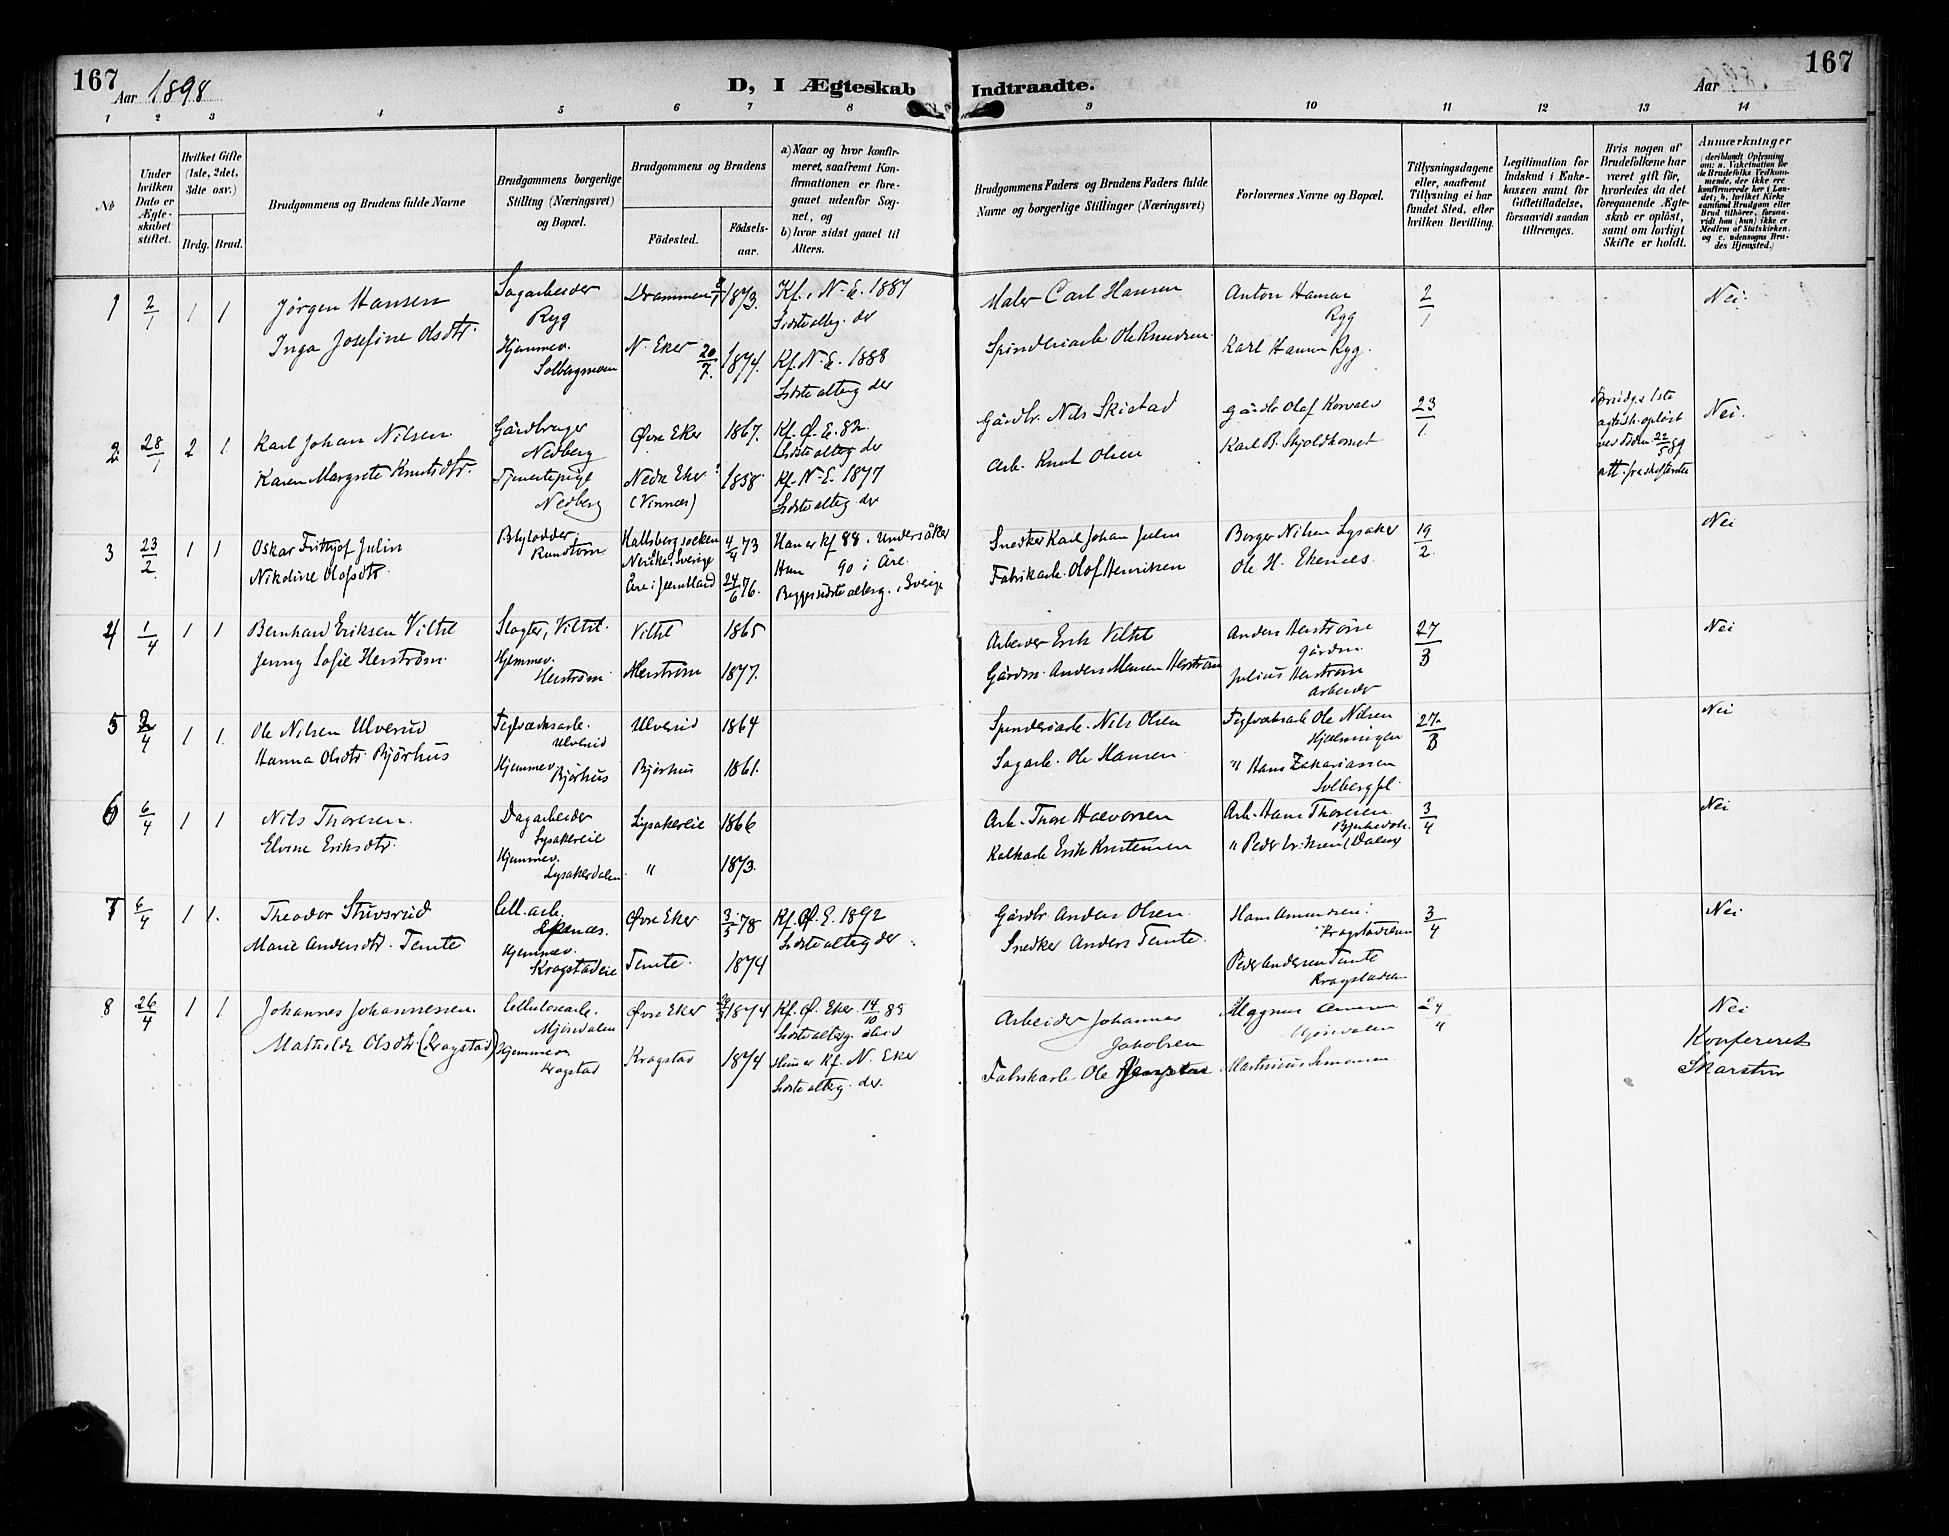 167
Aar 1898
D, I Ægteskab Indtraadte.
Aar
167
1 2 3 4 5 6 7 8 9 10 11 12 13 14
No
Under hvilken Dato er Ægteskabet stiftet.
Hvilket Gifte (1ste, 2det, 3die osv.)
Brdg. Brud.
Brudgommens og Brudens fulde Navne
Brudgommens borgerlige Stilling (Næringsvei) og Bopæl.
Brudgommens og Brudens
Födested.
Födselsaar.
a) Naar og hvor konfirmeret, saafremt Konfirmationen er foregaaet udenfor Sognet, og
b) hvor sidst gaaet til Alters.
Brudgommens Faders og Brudens Faders fulde Navne og borgerlige Stillinger (Næringsvei)
Forlovernes Navne og Bopæl.
Tillysningsdagene eller, saafremt Tillysning ei har fundet Sted, efter hvilken Bevilling.
Legitimation for Indskud i Enkekassen samt for Giftetilladelse, forsaavidt saadan tiltrænges.
Hvis nogen af Brudefolkene har været gift för, hvorledes da det foregaaende Ægteskab er oplöst, samt om lovligt Skifte er holdt.
Anmærkninger
(deriblandt Oplysning om: a. Vakcination for de Brudefolks Vedkommende, der ikke ere konfirmerede her i Landet; b. hvilket Kirkesamfund Brudgom eller Brud tilhörer, forsaavidt han (hun) ikke er Medlem af Statskirken, og c. udensogns Brudes Hjemsted.)
1 2/1 1 1
Jørgen Hansen
Inga Josefine Olsdtr.
Sagarbeider
Ryg
Hjemmev.
Solbergmoen
Drammen 1873.
N. Eker 20/7. 1874.
Kf. i N-E. 1887
Sidste alterg. der
Kf. N-E. 1888
Sidste alterg der
Maler Carl Hansen
Spinderiarb Ole Knudsen.
Anton Hansen
Ryg
Karl Hansen Ryg.
2/1
Nei.
2 28/1 2 1
Karl Johan Nilsen
Karen Margrete Knutsdtr.
Gårdbruger
Nedberg
Tjenestepige
Nedberg
Øvre Eker 1867.
Nedre Eker (Vinnæs) 1858
Kf. Ø. E. 82.
Sidste alterg der
Kf. N-E. 1877
Sidste alterg der
Gårdbr. Nils Skistad
Arb. Knut Olsen
Gårdbr Olof Korvald
Karl B. Skjoldhornet
23/1.
Brudg.s 1ste
ægtesk. opløst
ved døden 22/5 89
Nei.
3 23/2. 1 1
Oskar Frithjof Julin
Nikoline Olofsdtr.
Rundtom
Hallsberg socken
Nerike. Sverige
Åre i Jemtland
4/4 73
24/6 76.
Han er kf 88 i Undersåker
Hun 90 i Åre
Begge sidste alterg. i Sverige
Snedker Karl Johan Julin
Fabrikarb. Olof Henriksen
Borger Nilsen Lysaker
Ole H. Ekenes.
19/2.
Nei
4 1/4 1 1
Bernhard Eriksen Viltil
Jenny Sofie Herstrøm.
Slagter, Viltil.
Hjemmev.
Herstrøm
Viltil 1865
Herstrøm 1877.
Arbeider Erik Viltil
Gårdm. Anders Monsen Herstrøm
Anders Herstrøm
gårdm.
Julius Herstrøm
arbeider
27/3
Nei
5 2/4 1 1.
Ole Nilsen Ulverud
Hanna Olsdtr. Bjørhus
Teglværksarb.
Ulverud
Hjemmev.
Bjørhus
Ulverud 1864
Bjørhus 1861.
Spinderiarb. Nils Olsen
Sagarb. Ole Hansen
Teglværksarb Ole Nilsen
" Hans Zakariassen
Solbergfl.
27/3
Nei
6 6/4 1 1
Nils Thoresen.
Elvine Eriksdtr.
Dagarbeider
Lysakereie
Hjemmev.
Lysakerdalen
Lysakereie 1866
" 1873.
Arb. Thore Halvorsen
Kalkarb Erik Kristensen
Arb. Hans Thoresen
" Peder Eriksen (Dalen)
3/4
Nei
7 6/4 1 1.
Theodor Stuvsrud
Marie Andersdtr. Temte
Cell. arb.
Ekenæs.
Hjemmev.
Krogstadeie
Øvre Eker. 3/5 78
Temte. 1874
Kf. Ø. E. 1892
Sidste alterg der
Gårdbr. Anders Olsen
Snedker Anders Temte.
Hans Amundsen
Krogstadeien
Peder Andersen Temte
Krogstadeien
3/4
Nei
8 26/4 1 1
Johannes Johannessen.
Mathilde Olsdtr (Krogstad)
Cellulosearb.
Mjøndalen
Hjemmev
Krogstad
Øvre Eker 1874
Krogstad 1874
Kf. Ø. Eker. 14/10 89
Sidste alterg. ibid
Hun er Kf. N. Eker
Sidste alterg. der.
Arbeider Johannes
Jakobsen
Fabrikarb Ole
Magnus
Mjøndalen
Martinius Simonsen
24/4
Nei
Konfereret
Skarstein